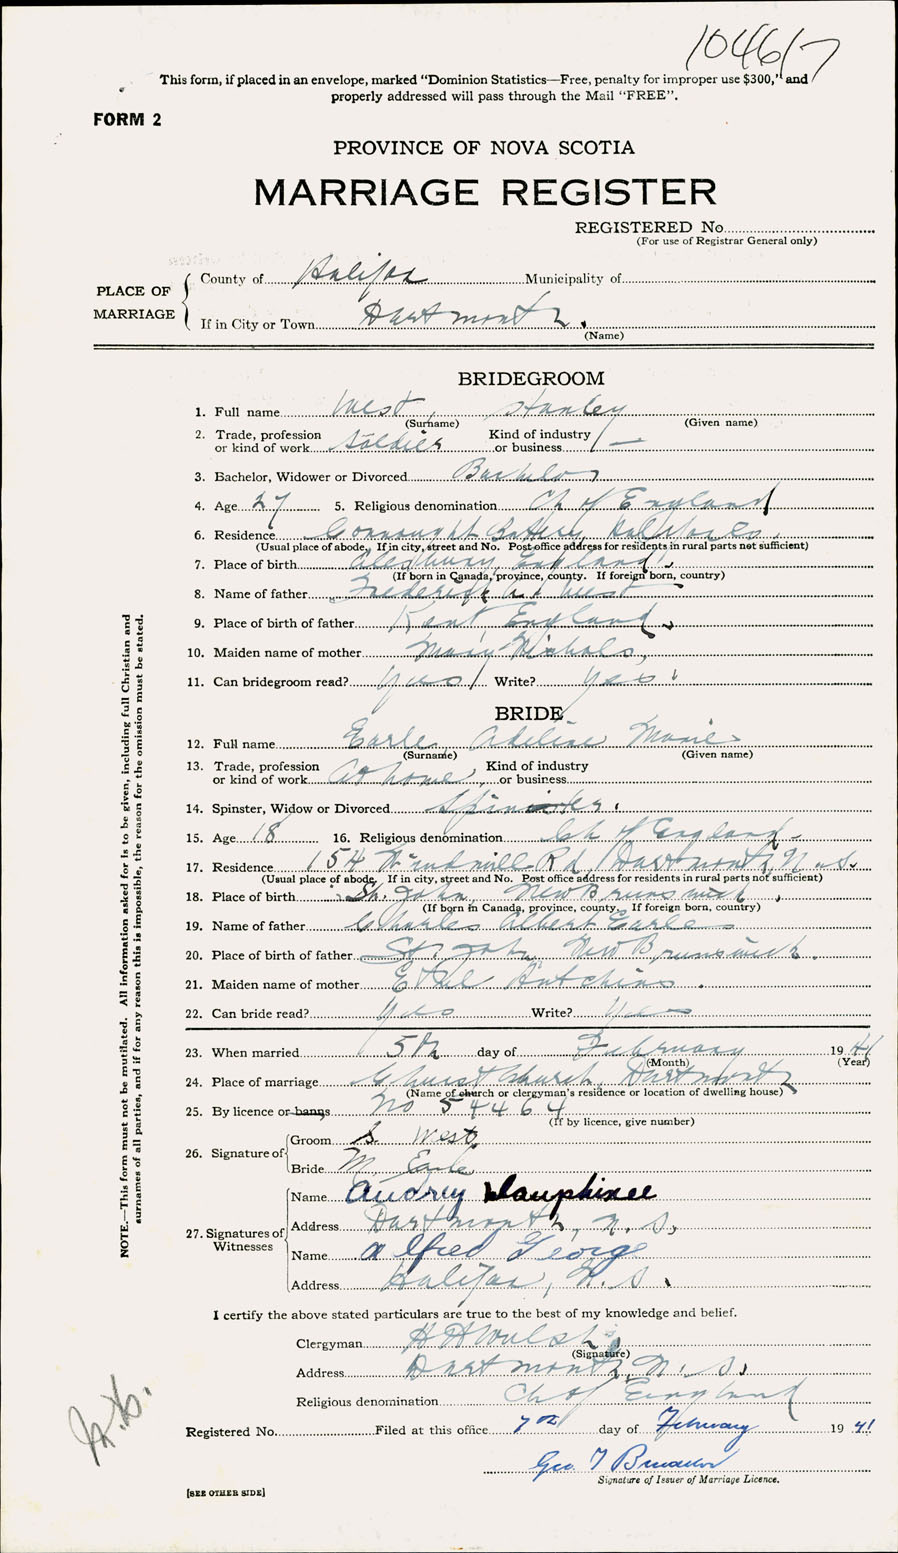 104617
This form, if placed in an envelope, marked “Dominion Statistics—Free, penalty for improper use $300,” and
properly addressed will pass through the Mail “FREE”.
FORM 2
PROVINCE OF NOVA SCOTIA
MARRIAGE REGISTER
REGISTERED No.
(For use of Registrar General only)
PLACE OF MARRIAGE
County of Halifax Municipality of
If in City or Town Dartmouth.
(Name)
BRIDEGROOM
1. Full name West, Stanley
(Surname) (Given name)
2. Trade, profession or kind of work Soldier Kind of industry or business —
3. Bachelor, Widower or Divorced Bachelor
4. Age 27 5. Religious denomination Ch of England
6. Residence Connaught Battery, Halifax
(Usual place of abode. If in city, street and No. Post office address for residents in rural parts not sufficient)
7. Place of birth England.
(If born in Canada, province, county. If foreign born, country)
8. Name of father Frederick West
9. Place of birth of father Kent England.
10. Maiden name of mother Mary Nichols,
11. Can bridegroom read? Yes Write? Yes
BRIDE
12. Full name Earle Adeline Marie
(Surname) (Given name)
13. Trade, profession or kind of work At home Kind of industry or business
14. Spinster, Widow or Divorced Spinster.
15. Age 18 16. Religious denomination Ch of England
17. Residence 154 Windmill Rd, Dartmouth, N.S.
(Usual place of abode. If in city, street and No. Post office address for residents in rural parts not sufficient)
18. Place of birth St. John, New Brunswick.
(If born in Canada, province, county. If foreign born, country)
19. Name of father Charles Albert Earle
20. Place of birth of father St. John New Brunswick.
21. Maiden name of mother Ethel Hutchins.
22. Can bride read? Yes Write? Yes
23. When married 5th day of February 1941
(Month) (Year)
24. Place of marriage Christ Church, Dartmouth
(Name of church or clergyman's residence or location of dwelling house)
25. By licence or banns No 54464
(If by licence, give number)
26. Signature of
Groom S. West
Bride M. Earle
27. Signatures of Witnesses
Name Audrey Dauphinee
Address Dartmouth, N.S.
Name Alfred George
Address Halifax, N.S.
I certify the above stated particulars are true to the best of my knowledge and belief.
Clergyman H H
(Signature)
Address Dartmouth, N.S.
Religious denomination Ch of England
Registered No. Filed at this office 7th day of February 1941
Geo T
Signature of Issuer of Marriage Licence.
[SEE OTHER SIDE]
NOTE.—This form must not be mutilated. All information asked for is to be given, including full Christian and
surnames of all parties, and if for any reason this is impossible, the reason for the omission must be stated.